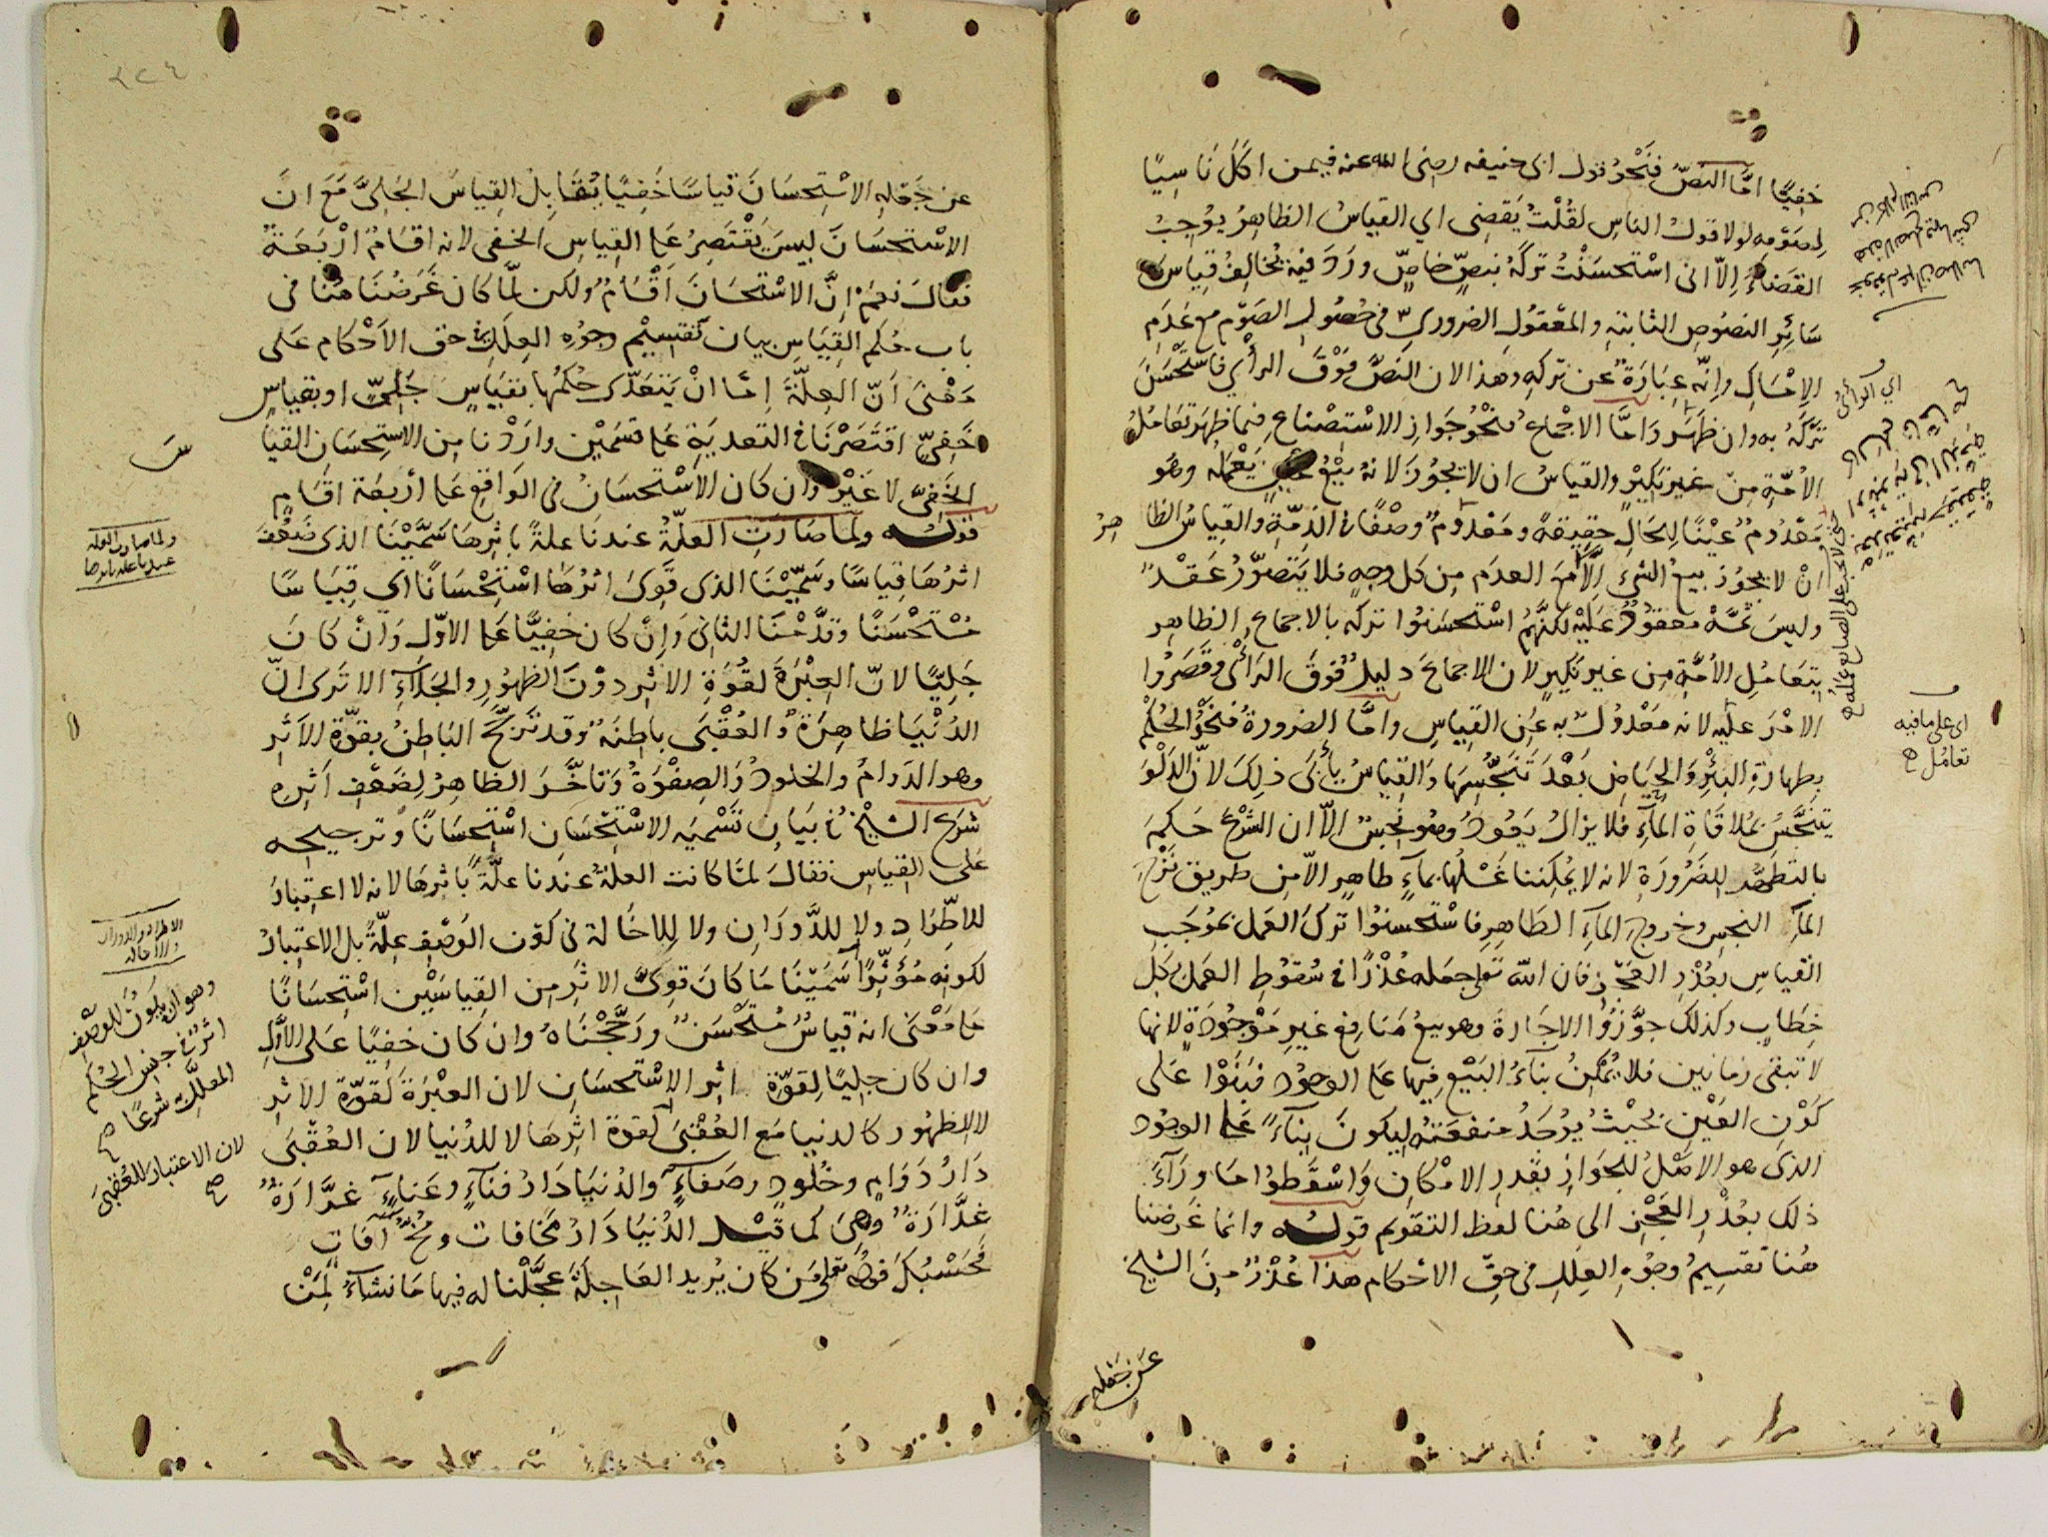 خفيًّا امّا النصّ فنحو قول ابى حنيفه رضى الله عنه فيمن اكل ناسيًا
لصومه لولا قول الناس لقلت يقضى اي القياس الظاهر يوجب
القضاء إلّا انى استحسنت تركه بنصّ خاصّ ورد فيه يخالف قياس
سائر النصوص الثابتة والمعقول الضروري فى حصول الصوم مع عدم
الإمساك وإنّه عبارة عن تركه وهذا لان النصّ فوق الرأي فاستحسن
تركه به وان ظهر وامّا الاجماع فنحو جواز الاستصناع فيما ظهر تعامل
الأمّة من غير نكير والقياس ان لا يجوز لانه بيع يعمله وهو
معدوم عينًا للحال حقيقة ومعدوم وصفًا فى الذمّة والقياس الظا
هر
انْ لا يجوز بيع الشئ إلّا مع العدم من كل وجه فلا يتصوّر عقد
وليس ثمّة معقود عليه لكنّهم استحسنوا تركه بالاجماع الظاهر
بتعامل الأمّة من غير نكير لان الاجماع دليل فوق الرأى وقصروا
الامر عليه لانه معدول به عن القياس وامّا الضرورة فنحو الحكم
بطهارة البئر والحياض بعد تنجّسها والقياس يأبى ذلك لانّ الدلو
يتنجّس بملاقاة الماء فلا يزال يعود وهو نجس إلّا ان الشرع حكم
بالتطهر للضرورة لانه لا يمكننا غسلها بماء طاهر الّا من طريق نزح
الماء النجس وخروج الماء الطاهر فاستحسنوا ترك العمل بموجب
القياس بعذر العجز فان الله تعلى جعله عذرًا فى سقوط العمل بكل
خطاب وكذلك جوّزوا الاجارة وهو بيع منافع غير موجودة لانها
لا تبقى زمانين فلا يمكن بناء البيع فيها على الوجود فبنوا على
كون العين بحيث يوجد منفعته ليكون بناءً على الوجود
الذى هو الاصل للجواز بقدر الامكان واسقطوا ما وراء
ذلك بعذر العجز الى هنا لفظ التقويم قوله وانما غرضنا
هنا تقسيم وجوه العلل فى حقّ الاحكام هذا عذر من الشيخ
عن جعله
اى على ما فيه
تعامل صح
عن جعله الاستحسان قياسًا خفيًا يقابل القياس الجلىّ مع ان
الاستحسان ليس يقتصر على القياس الخفى لانه اقسام اربعة
فقال نعم إنّ الاستحسان أقسام ولكن لمّا كان غرضنا هنا فى
باب حكم القياس بيان تقسيم وجوه العلل فى حق الأحكام على
معنى أنّ العلّة إمّا انْ يتعدّى حكمها بقياس جليّ او بقياس
خفيّ اقتصرنا فى التعدية على قسمين واردنا من الاستحسان القيا
س
الخفىّ لا غير وان كان الاستحسان فى الواقع على اربعة اقسام
قوله ولما صارت العلّة عندنا علةً باثرها سمّينا الذى ضعف
اثرها قياسًا وسمّينا الذى قوى اثرها استحسانًا اى قياسًا
مستحسنًا وقدّمنا الثانى وإنْ كان خفيًّا على الاوّل وإنْ كان
جليًا لانّ العبرة لقوة الاثر دون الظهور والجلاء الا ترى انّ
الدنيا ظاهرة والعقبى باطنة وقد ترجّح الباطن بقوّة الأثر
وهو الدوام والخلود والصفوة وتأخّر الظاهر لضعف أثره
شرع الشيخ فى بيان تسميه الاستحسان استحسانًا وترجيحه
على القياس فقال لمّا كانت العلة عندنا علّةً باثرها لانه لا اعتبار
للاطّراد ولا للدوران ولا للاخالة فى كون الوصف علّة بل الاعتبار
لكونه مؤثّرًا سمّينا ما كان قوىّ الاثر من القياسين استحسانًا
على معنى انه قياس مستحسن ورجّحناه وان كان خفيًا على الاوّل
وان كان جليًا لقوّة اثر الاستحسان لان العبرة لقوّة الاثر
لا للظهور كالدنيا مع العقبى لقوة اثرها لا للدنيا لان العقبى
دار دوام وخلود وصفاء والدنيا دار فناء وعناء غرّارة
غدّارة وهى كما قيل الدنيا دار مخافات وآفات
فحسبك قوله تعلى من كان يريد العاجلة عجّلنا له فيها ما نشاء لمن
ولما صارت العلة
عندنا علة باثرها
الاطراد والدوران
والاخاله
وهو ان يكون للوصف
اثر فى جنس الحكم
المعلل شرعًا صح
لان الاعتبار للعقبى
صح